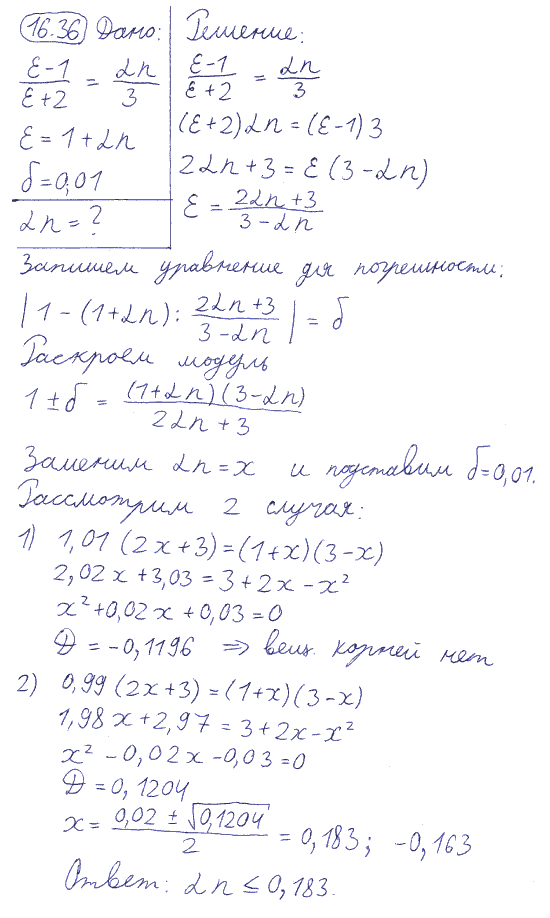 16.36 Дано: Решение:
(ε-1)/(ε+2) = αn/3
ε = 1 + αn
δ = 0,01
αn = ?
(ε-1)/(ε+2) = αn/3
(ε+2)αn = (ε-1)3
2αn + 3 = ε (3 - αn)
ε = (2αn + 3)/(3 - αn)
Запишем уравнение для погрешности:
| 1 - (1+αn) : (2αn + 3)/(3 - αn) | = δ
Раскроем модуль
1 ± δ = (1+αn)(3-αn)/(2αn + 3)
Заменим αn = x и подставим δ=0,01.
Рассмотрим 2 случая:
1) 1,01 (2x+3) = (1+x)(3-x)
2,02x + 3,03 = 3 + 2x - x²
x² + 0,02x + 0,03 = 0
D = -0,1196 ⇒ вещ. корней нет
2) 0,99 (2x+3) = (1+x)(3-x)
1,98x + 2,97 = 3 + 2x - x²
x² - 0,02x - 0,03 = 0
D = 0,1204
x = (0,02 ± √0,1204)/2 = 0,183; -0,163
Ответ: αn ≤ 0,183.